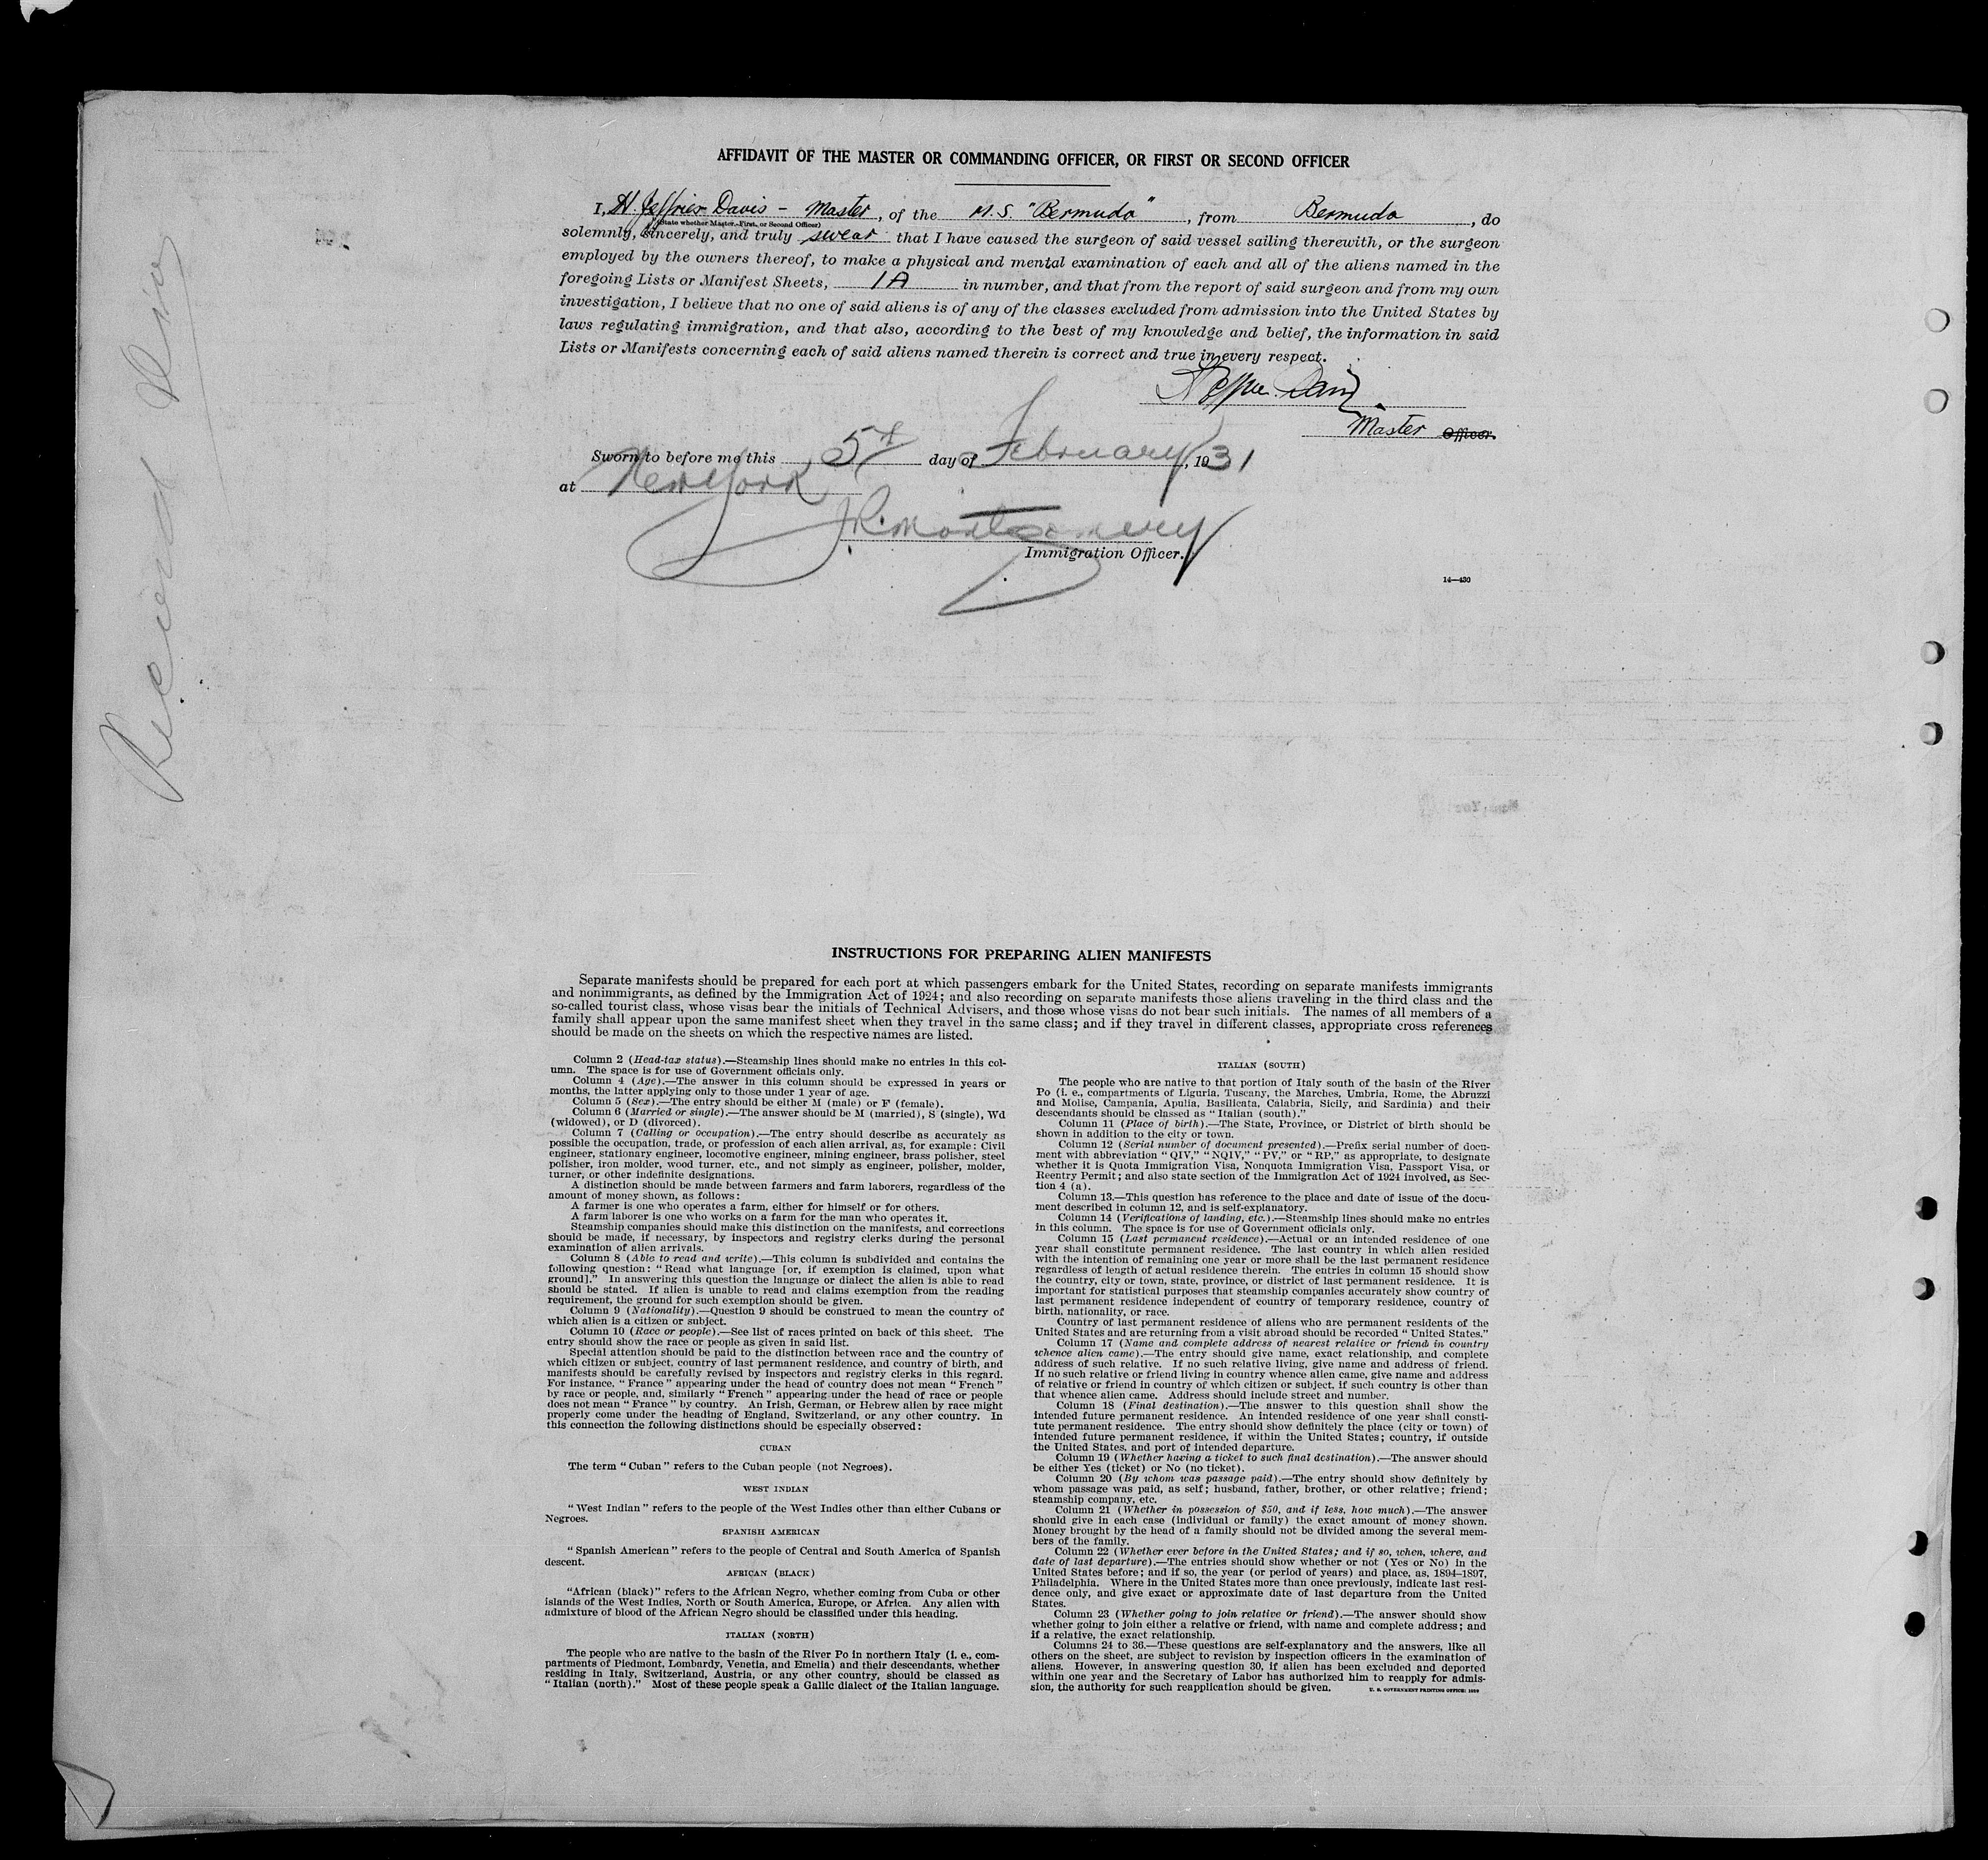 AFFIDAVIT OF THE MASTER OR COMMANDING OFFICER, OR FIRST OR SECOND OFFICER
I, H. Jeffries Davis - Master, of the M.S. "Bermuda", from Bermuda, do
(State whether Master, First, or Second Officer)
solemnly, sincerely, and truly swear that I have caused the surgeon of said vessel sailing therewith, or the surgeon
employed by the owners thereof, to make a physical and mental examination of each and all of the aliens named in the
foregoing Lists or Manifest Sheets, 1A in number, and that from the report of said surgeon and from my own
investigation, I believe that no one of said aliens is of any of the classes excluded from admission into the United States by
laws regulating immigration, and that also, according to the best of my knowledge and belief, the information in said
Lists or Manifests concerning each of said aliens named therein is correct and true in every respect.
Master Officer.
Sworn to before me this 5th day of February, 1931
at New York
J.R. Montgomery
Immigration Officer.
14—430
Record
INSTRUCTIONS FOR PREPARING ALIEN MANIFESTS
Separate manifests should be prepared for each port at which passengers embark for the United States, recording on separate manifests immigrants
and nonimmigrants, as defined by the Immigration Act of 1924; and also recording on separate manifests those aliens traveling in the third class and the
so-called tourist class, whose visas bear the initials of Technical Advisers, and those whose visas do not bear such initials. The names of all members of a
family shall appear upon the same manifest sheet when they travel in the same class; and if they travel in different classes, appropriate cross references
should be made on the sheets on which the respective names are listed.
Column 2 (Head-tax status).—Steamship lines should make no entries in this col-
umn. The space is for use of Government officials only.
Column 4 (Age).—The answer in this column should be expressed in years or
months, the latter applying only to those under 1 year of age.
Column 5 (Sex).—The entry should be either M (male) or F (female).
Column 6 (Married or single).—The answer should be M (married), S (single), Wd
(widowed), or D (divorced).
Column 7 (Calling or occupation).—The entry should describe as accurately as
possible the occupation, trade, or profession of each alien arrival, as, for example: Civil
engineer, stationary engineer, locomotive engineer, mining engineer, brass polisher, steel
polisher, iron molder, wood turner, etc., and not simply as engineer, polisher, molder,
turner, or other indefinite designations.
A distinction should be made between farmers and farm laborers, regardless of the
amount of money shown, as follows:
A farmer is one who operates a farm, either for himself or for others.
A farm laborer is one who works on a farm for the man who operates it.
Steamship companies should make this distinction on the manifests, and corrections
should be made, if necessary, by inspectors and registry clerks during the personal
examination of alien arrivals.
Column 8 (Able to read and write).—This column is subdivided and contains the
following question: "Read what language [or, if exemption is claimed, upon what
ground]." In answering this question the language or dialect the alien is able to read
should be stated. If alien is unable to read and claims exemption from the reading
requirement, the ground for such exemption should be given.
Column 9 (Nationality).—Question 9 should be construed to mean the country of
which alien is a citizen or subject.
Column 10 (Race or people).—See list of races printed on back of this sheet. The
entry should show the race or people as given in said list.
Special attention should be paid to the distinction between race and the country of
which citizen or subject, country of last permanent residence, and country of birth, and
manifests should be carefully revised by inspectors and registry clerks in this regard.
For instance, "France" appearing under the head of country does not mean "French"
by race or people, and, similarly "French" appearing under the head of race or people
does not mean "France" by country. An Irish, German, or Hebrew alien by race might
properly come under the heading of England, Switzerland, or any other country. In
this connection the following distinctions should be especially observed:
CUBAN
The term "Cuban" refers to the Cuban people (not Negroes).
WEST INDIAN
"West Indian" refers to the people of the West Indies other than either Cubans or
Negroes.
SPANISH AMERICAN
"Spanish American" refers to the people of Central and South America of Spanish
descent.
AFRICAN (BLACK)
"African (black)" refers to the African Negro, whether coming from Cuba or other
islands of the West Indies, North or South America, Europe, or Africa. Any alien with
admixture of blood of the African Negro should be classified under this heading.
ITALIAN (NORTH)
The people who are native to the basin of the River Po in northern Italy (i. e., com-
partments of Piedmont, Lombardy, Venetia, and Emelia) and their descendants, whether
residing in Italy, Switzerland, Austria, or any other country, should be classed as
"Italian (north)." Most of these people speak a Gallic dialect of the Italian language.
ITALIAN (SOUTH)
The people who are native to that portion of Italy south of the basin of the River
Po (i. e., compartments of Liguria, Tuscany, the Marches, Umbria, Rome, the Abruzzi
and Molise, Campania, Apulia, Basilicata, Calabria, Sicily, and Sardinia) and their
descendants should be classed as "Italian (south)."
Column 11 (Place of birth).—The State, Province, or District of birth should be
shown in addition to the city or town.
Column 12 (Serial number of document presented).—Prefix serial number of docu-
ment with abbreviation "QIV," "NQIV," "PV," or "RP," as appropriate, to designate
whether it is Quota Immigration Visa, Nonquota Immigration Visa, Passport Visa, or
Reentry Permit; and also state section of the Immigration Act of 1924 involved, as Sec-
tion 4 (a).
Column 13.—This question has reference to the place and date of issue of the docu-
ment described in column 12, and is self-explanatory.
Column 14 (Verifications of landing, etc.).—Steamship lines should make no entries
in this column. The space is for use of Government officials only.
Column 15 (Last permanent residence).—Actual or an intended residence of one
year shall constitute permanent residence. The last country in which alien resided
with the intention of remaining one year or more shall be the last permanent residence
regardless of length of actual residence therein. The entries in column 15 should show
the country, city or town, state, province, or district of last permanent residence. It is
important for statistical purposes that steamship companies accurately show country of
last permanent residence independent of country of temporary residence, country of
birth, nationality, or race.
Country of last permanent residence of aliens who are permanent residents of the
United States and are returning from a visit abroad should be recorded "United States."
Column 17 (Name and complete address of nearest relative or friend in country
whence alien came).—The entry should give name, exact relationship, and complete
address of such relative. If no such relative living, give name and address of friend.
If no such relative or friend living in country whence alien came, give name and address
of relative or friend in country of which citizen or subject, if such country is other than
that whence alien came. Address should include street and number.
Column 18 (Final destination).—The answer to this question shall show the
intended future permanent residence. An intended residence of one year shall consti-
tute permanent residence. The entry should show definitely the place (city or town) of
intended future permanent residence, if within the United States; country, if outside
the United States, and port of intended departure.
Column 19 (Whether having a ticket to such final destination).—The answer should
be either Yes (ticket) or No (no ticket).
Column 20 (By whom was passage paid).—The entry should show definitely by
whom passage was paid, as self; husband, father, brother, or other relative; friend;
steamship company, etc.
Column 21 (Whether in possession of $50, and if less, how much).—The answer
should give in each case (individual or family) the exact amount of money shown.
Money brought by the head of a family should not be divided among the several mem-
bers of the family.
Column 22 (Whether ever before in the United States; and if so, when, where, and
date of last departure).—The entries should show whether or not (Yes or No) in the
United States before; and if so, the year (or period of years) and place, as, 1894–1897,
Philadelphia. Where in the United States more than once previously, indicate last resi-
dence only, and give exact or approximate date of last departure from the United
States.
Column 23 (Whether going to join relative or friend).—The answer should show
whether going to join either a relative or friend, with name and complete address; and
if a relative, the exact relationship.
Columns 24 to 36.—These questions are self-explanatory and the answers, like all
others on the sheet, are subject to revision by inspection officers in the examination of
aliens. However, in answering question 30, if alien has been excluded and deported
within one year and the Secretary of Labor has authorized him to reapply for admis-
sion, the authority for such reapplication should be given.
U. S. GOVERNMENT PRINTING OFFICE: